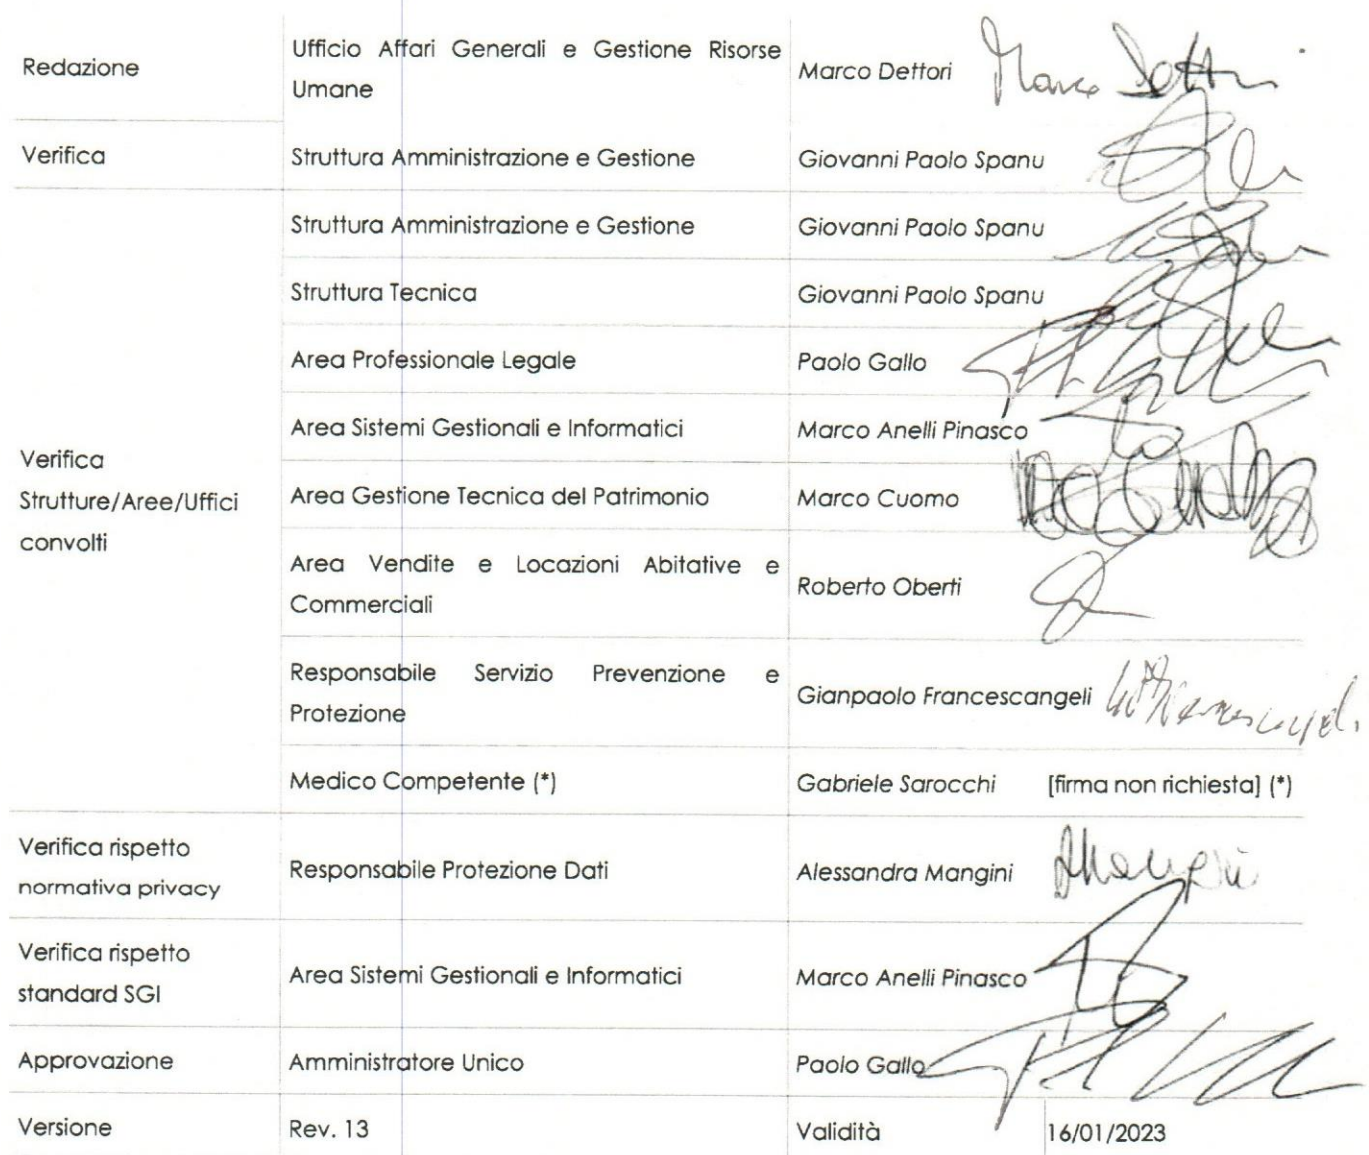 Redazione
Ufficio Affari Generali e Gestione Risorse
Umane
Marco Dettori
Marco Dettori
Verifica
Struttura Amministrazione e Gestione
Giovanni Paolo Spanu
Struttura Amministrazione e Gestione
Giovanni Paolo Spanu
Struttura Tecnica
Giovanni Paolo Spanu
Area Professionale Legale
Paolo Gallo
Area Sistemi Gestionali e Informatici
Marco Anelli Pinasco
Verifica
Strutture/Aree/Uffici
convolti
Area Gestione Tecnica del Patrimonio
Marco Cuomo
Area Vendite e Locazioni Abitative e
Commerciali
Roberto Oberti
Responsabile Servizio Prevenzione e
Protezione
Gianpaolo Francescangeli
Medico Competente (*)
Gabriele Sarocchi
[firma non richiesta] (*)
Verifica rispetto
normativa privacy
Responsabile Protezione Dati
Alessandra Mangini
AMangini
Verifica rispetto
standard SGI
Area Sistemi Gestionali e Informatici
Marco Anelli Pinasco
Approvazione
Amministratore Unico
Paolo Gallo
Versione
Rev. 13
Validità
16/01/2023